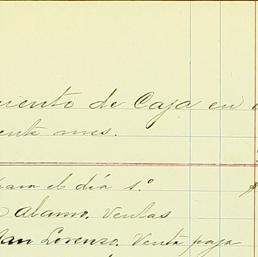 miento de Caja en
ente mes.
para el día 1.º
Alamo. Ventas
San Lorenzo. Venta paja